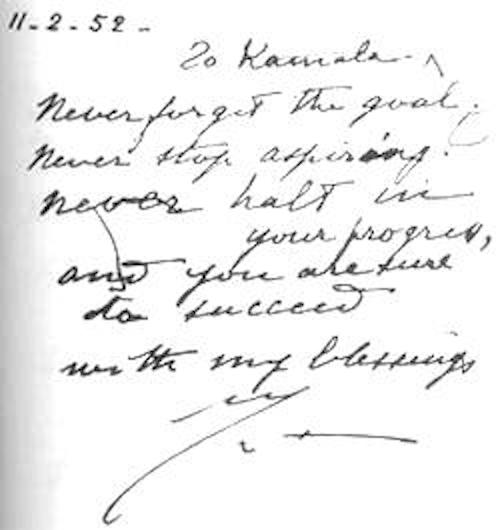 11-2-52-
To Kamala.
Never forget the goal.
Never stop aspiring.
Never halt in
your progress,
and you are sure
to succeed
with my blessings